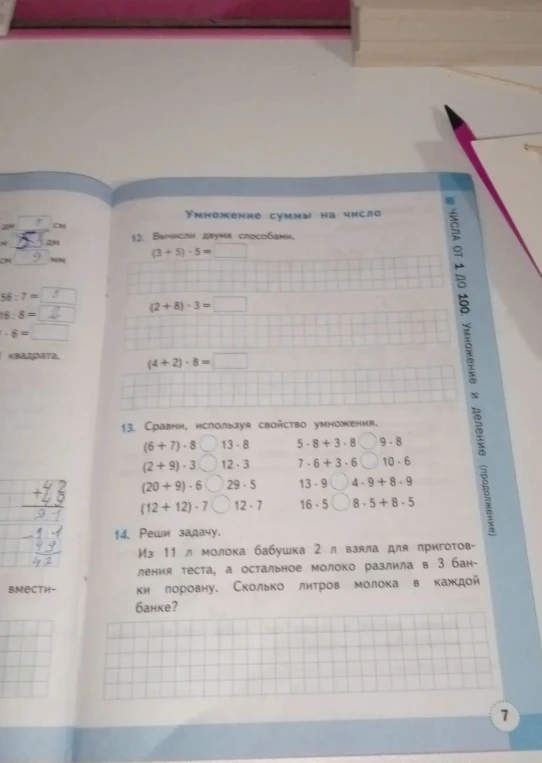 см
дм
9 мм
56 : 7 = 8
16 : 8 = 2
· 6 =
квадрата.
вмести-
Умножение суммы на число
12. Вычисли двумя способами.
(3 + 5) · 5 =
(2 + 8) · 3 =
(4 + 2) · 8 =
13. Сравни, используя свойство умножения.
(6 + 7) · 8 13 · 8 5 · 8 + 3 · 8 9 · 8
(2 + 9) · 3 12 · 3 7 · 6 + 3 · 6 10 · 6
(20 + 9) · 6 29 · 5 13 · 9 4 · 9 + 8 · 9
(12 + 12) · 7 12 · 7 16 · 5 8 · 5 + 8 · 5
14. Реши задачу.
Из 11 л молока бабушка 2 л взяла для приготов-
ления теста, а остальное молоко разлила в 3 бан-
ки поровну. Сколько литров молока в каждой
банке?
ЧИСЛА ОТ 1 ДО 100. Умножение и деление (продолжение)
7